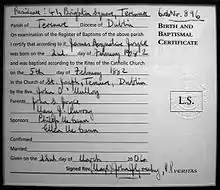 Residence: 41 Brighton Square Terenure
Parish of Terenure Diocese of Dublin
BIRTH AND
BAPTISMAL
CERTIFICATE
On examination of the Register of Baptisms of the above parish
I certify that according to it James Augustine Joyce
was born on the 2nd day of February 1882
and was baptised according to the Rites of the Catholic Church
on the 5th day of February 1882
in the Church of St Joseph, Terenure, Dublin
by the Rev. John O'Mulloy
Parents John S. Joyce
Mary J. Murray
Sponsors Philip McCann
Ellen McCann
L.S.
Confirmed
Married
Given on the day of March
Signed Rev. P.P.